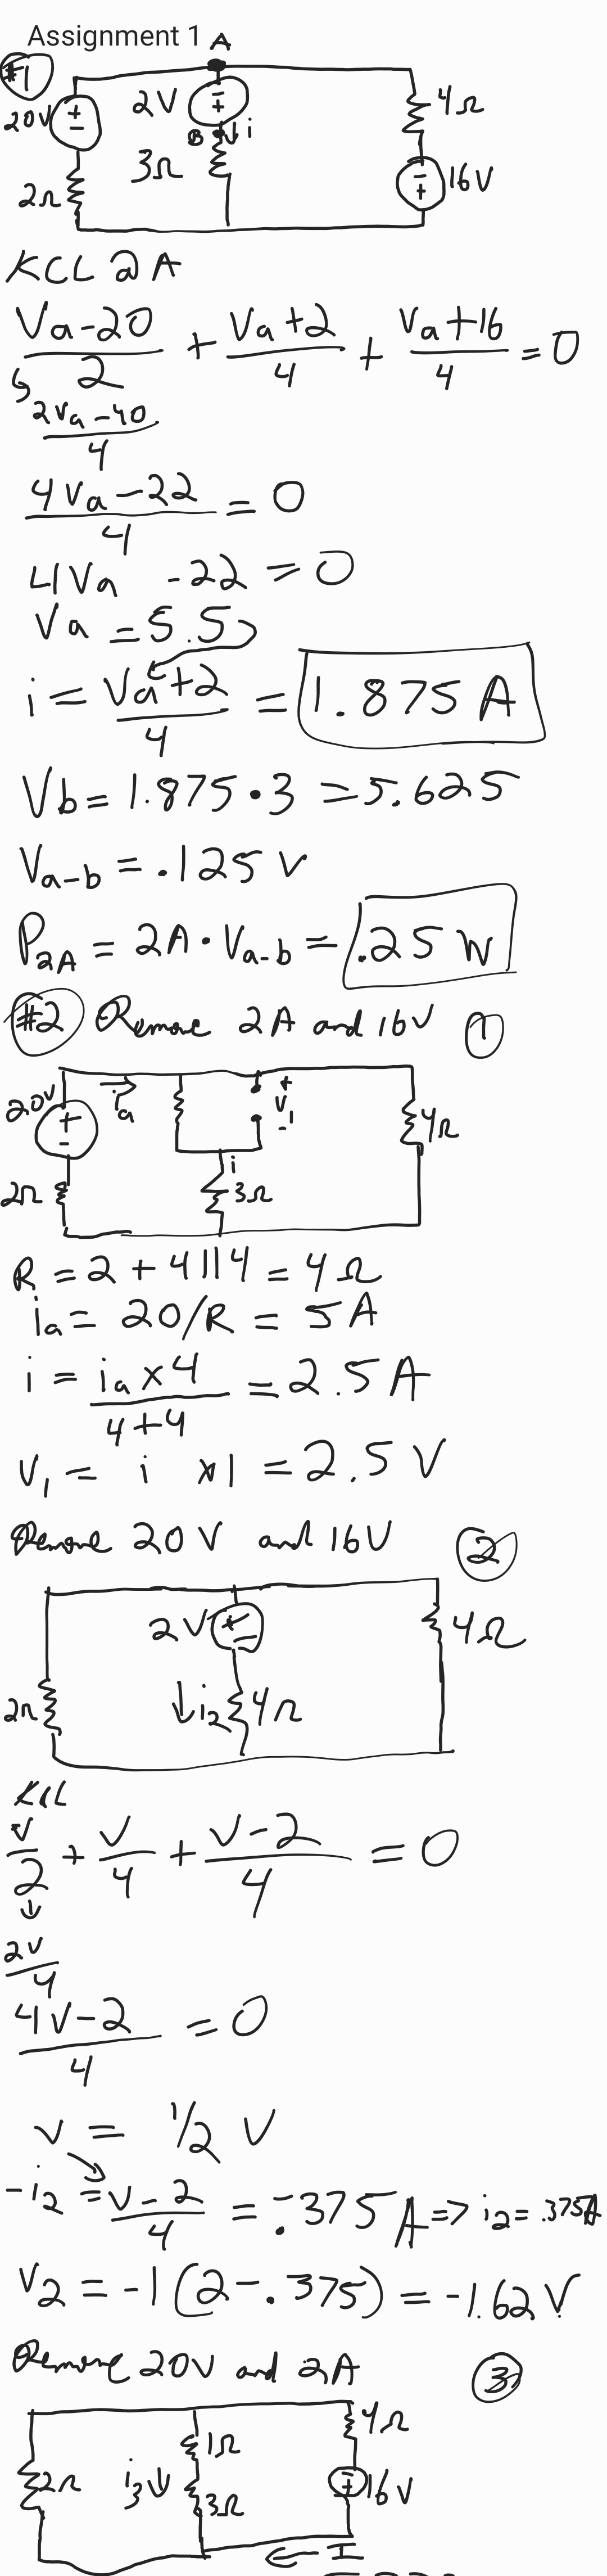 Assignment 1
A
#1
20V
+
-
2V
-
+
B
i
3Ω
2Ω
4Ω
-
+
16V
KCL @ A
(Va-20)/2 + (Va+2)/4 + (Va+16)/4 = 0
(2Va-40)/4
(4Va-22)/4 = 0
4Va -22 = 0
Va = 5.5
i = (Va+2)/4 = 1.875 A
Vb = 1.875 • 3 = 5.625
Va-b = .125 V
P2A = 2A • Va-b = .25 W
#2 Remove 2A and 16V ①
20V
+
-
ia
+
V1
-
4Ω
2Ω
i
3Ω
R = 2 + 4||4 = 4Ω
ia = 20/R = 5A
i = (ia x 4)/(4+4) = 2.5A
V1 = i x1 = 2.5 V
Remove 20V and 16V ②
2V
+
-
4Ω
2Ω
i2
4Ω
KCL
V/2 + V/4 + (V-2)/4 = 0
2V/4
(4V-2)/4 = 0
V = 1/2 V
-i2 = (V-2)/4 = -.375A => i2 = .375A
V2 = -1(2-.375) = -1.62V
Remove 20V and 2A ③
2Ω
i3
1Ω
3Ω
4Ω
-
+
16V
I